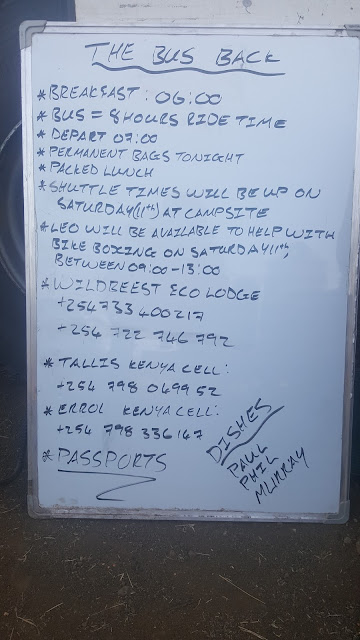 THE BUS BACK
* BREAKFAST: 06:00
* BUS = 8 HOURS RIDE TIME
* DEPART 07:00
* PERMANENT BAGS TONIGHT
* PACKED LUNCH
* SHUTTLE TIMES WILL BE UP ON
SATURDAY (11th) AT CAMPSITE
* LEO WILL BE AVAILABLE TO HELP WITH
BIKE BOXING ON SATURDAY 11th,
BETWEEN 09:00-13:00
* WILDBEEST ECO LODGE
+254 733 400 217
+254 722 746 792
* TALLIS KENYA CELL:
+254 798 049952
* ERROL KENYA CELL:
+254 798 336147
* PASSPORTS
DISHES
PAUL
PHIL
MURRAY